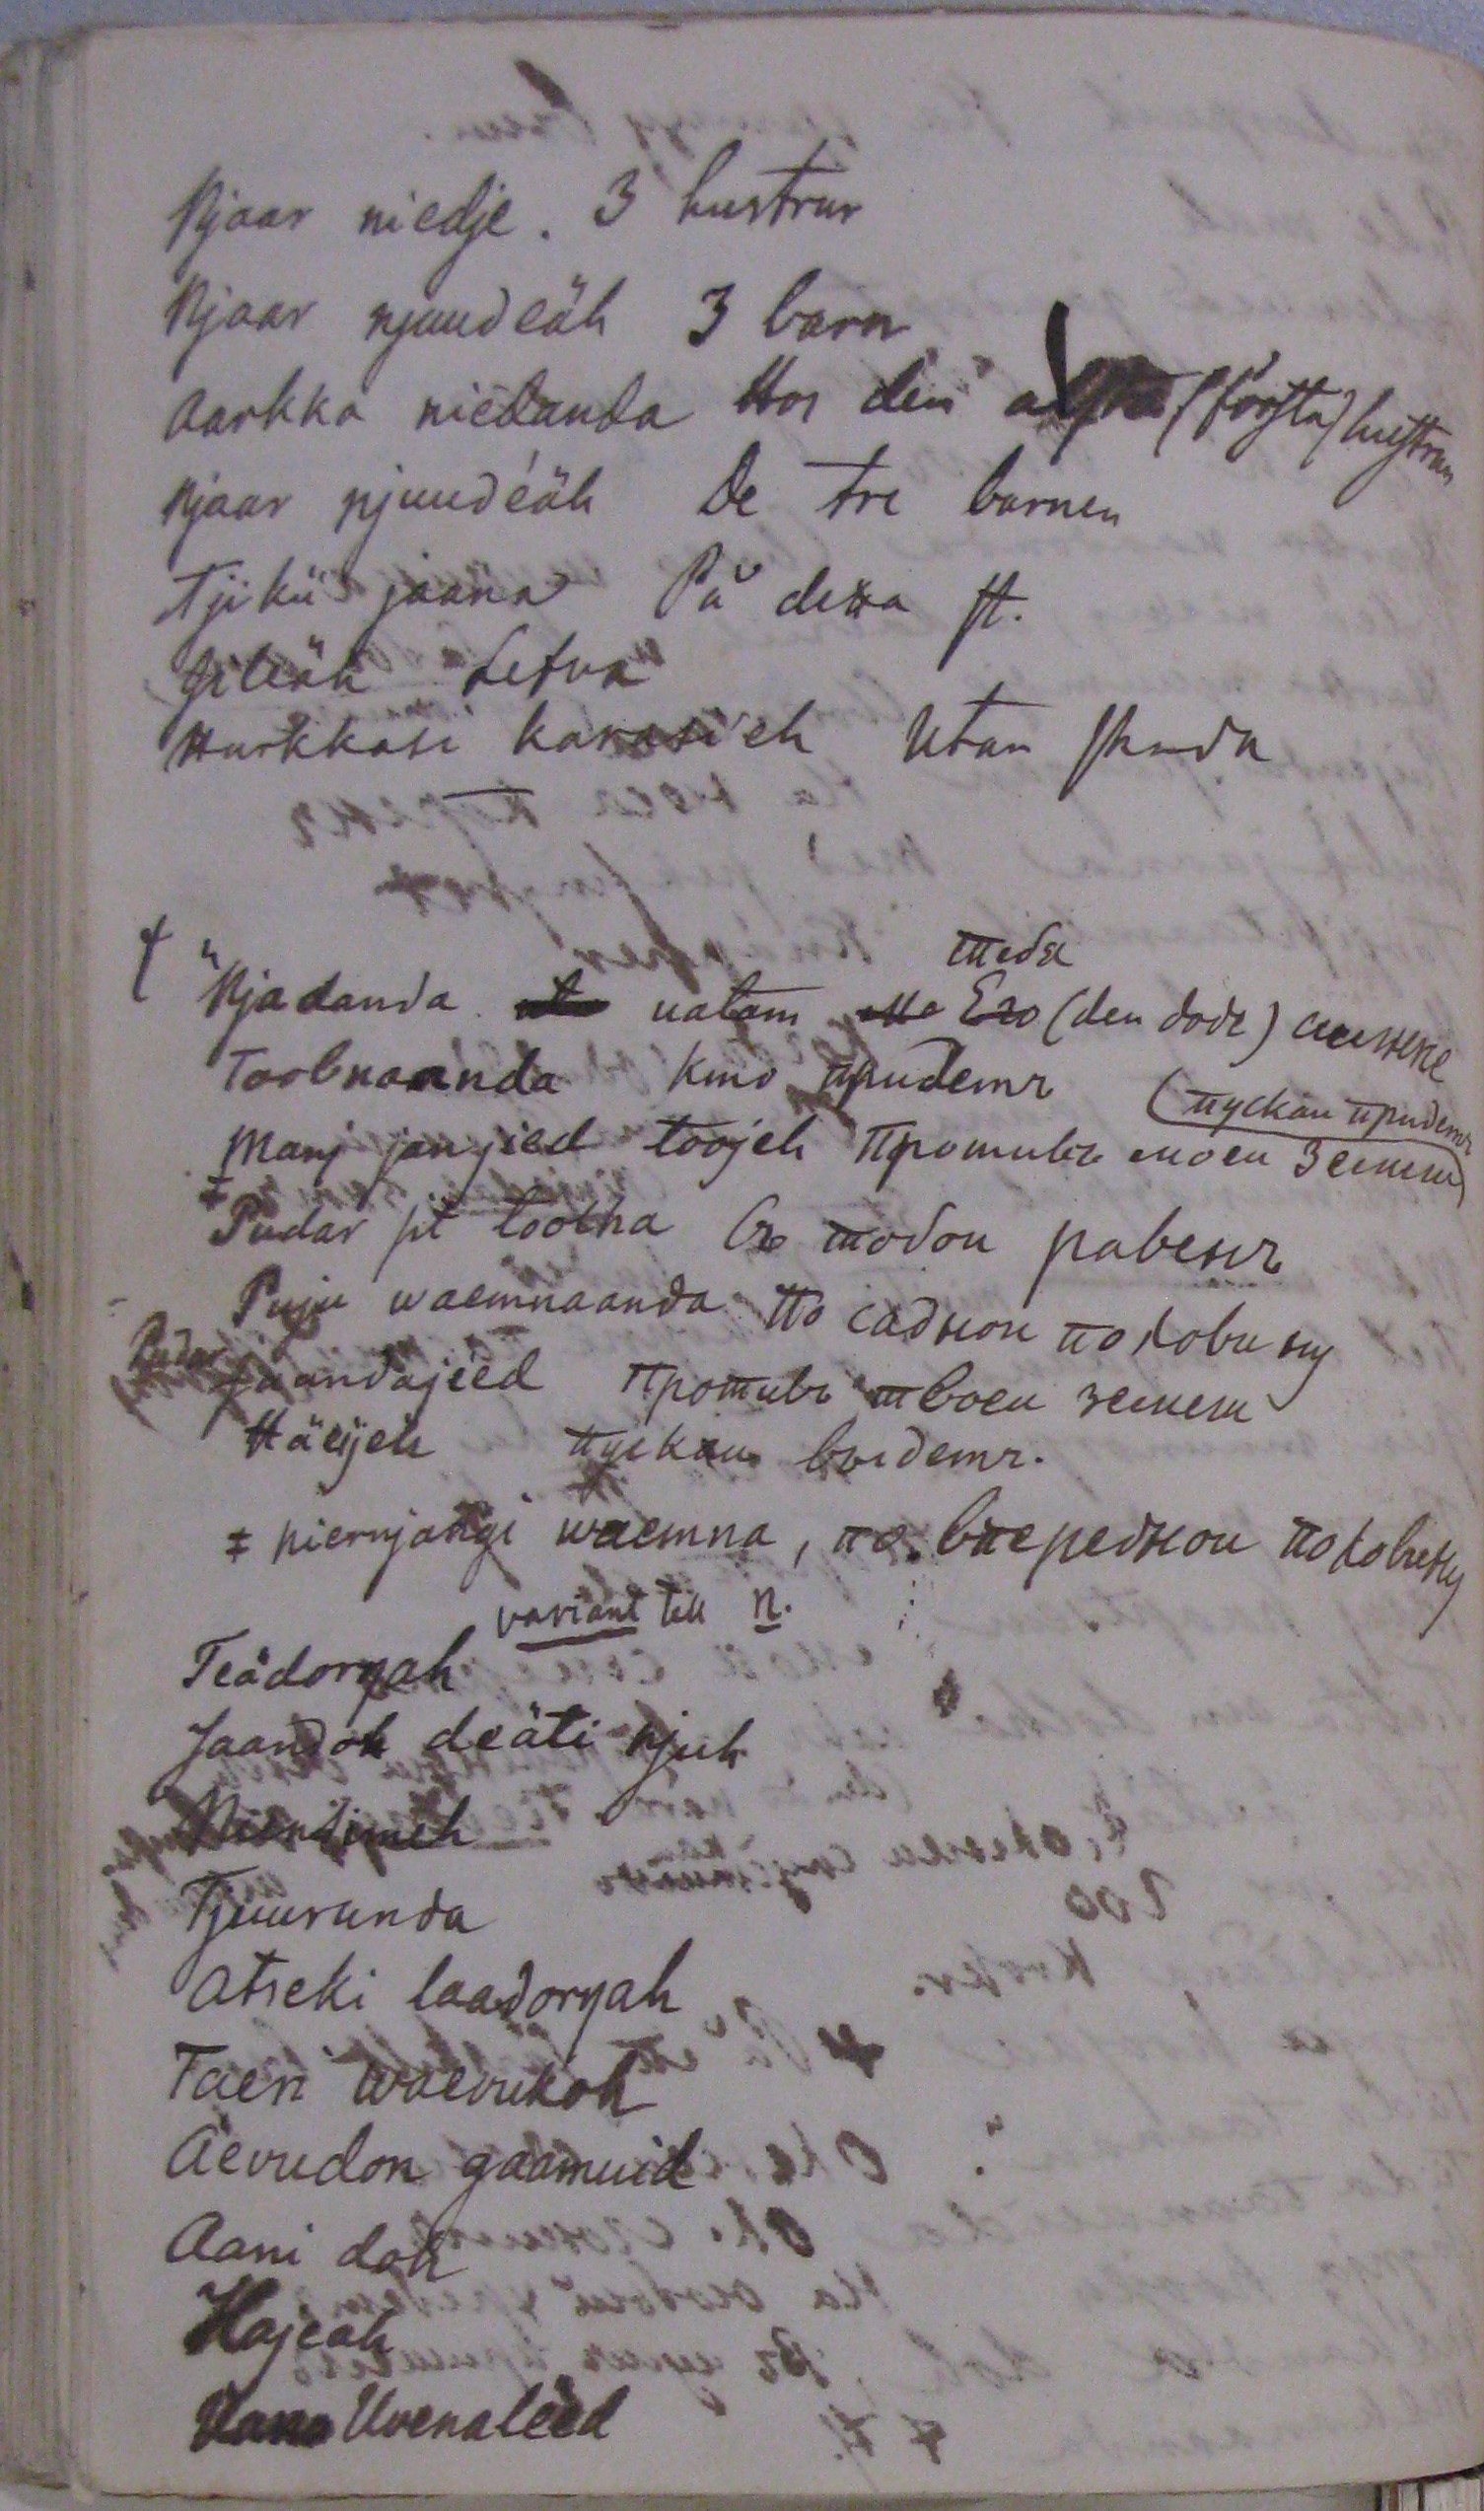 Njaar niedje. 3 hustrur
Njaar njuudeäh 3 barn
Aarkka niedanda Hos den (första) hustrun
Njaar njuudeäh De tre barnen
Tjikü jaana På dessa st.
Jileäh Lefva
Hurkkasi karasi'eh Utan skada
тебя
"Njadanda uatam Его (den döde) сильнее
Toolnaanda кто придетъ (пускай придетъ
Manj janjied toojeh Противъ моей земли)
‡
Pudar pt lootha Съ тобой равенъ
Puju waemnaanda По садной половину
Pudar
jaandajied противъ твоей земли
Häeijeh пускай выдетъ.
‡ niernjangi waemna, по впередной половину
variant till n.
Teädorŋah
Jaandoh deäti njuh
Niendimeh
Tjuurunda
Atseki laadorŋah
Taeri waevukoh
Aevudon gaamuid
Aani doh
Hajeah
Uvenaleed